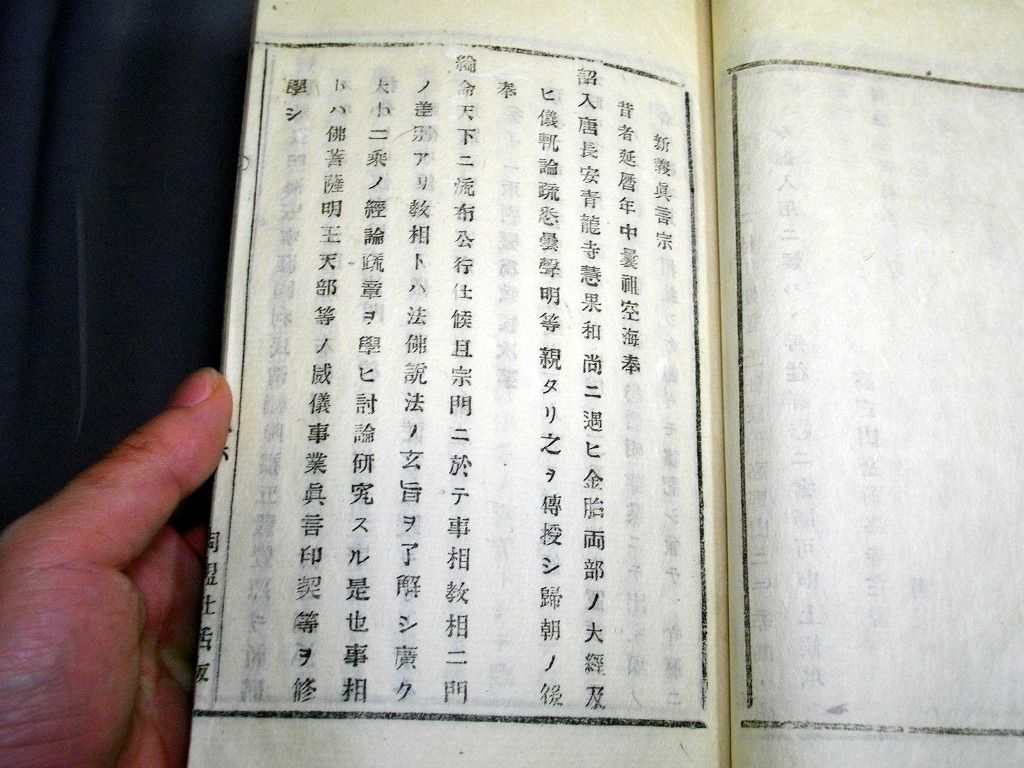 新義眞言宗
昔者延曆年中曩祖空海奉
詔入唐長安青龍寺慧果和尚ニ遇ヒ金胎両部ノ大經及
ヒ儀軌論疏悉曇聲明等親タリ之ヲ傳授シ歸朝ノ後
奉
綸命天下ニ流布公行仕候且宗門ニ於テ事相敎相二門
ノ差別アリ敎相トハ法佛說法ノ玄旨ヲ了解シ廣ク
大小二乘ノ經論疏章ヲ學ヒ討論研究スル是也事相
トハ佛菩薩明王天部等ノ威儀事業眞言印契等ヲ修
學シ
同盟社活版